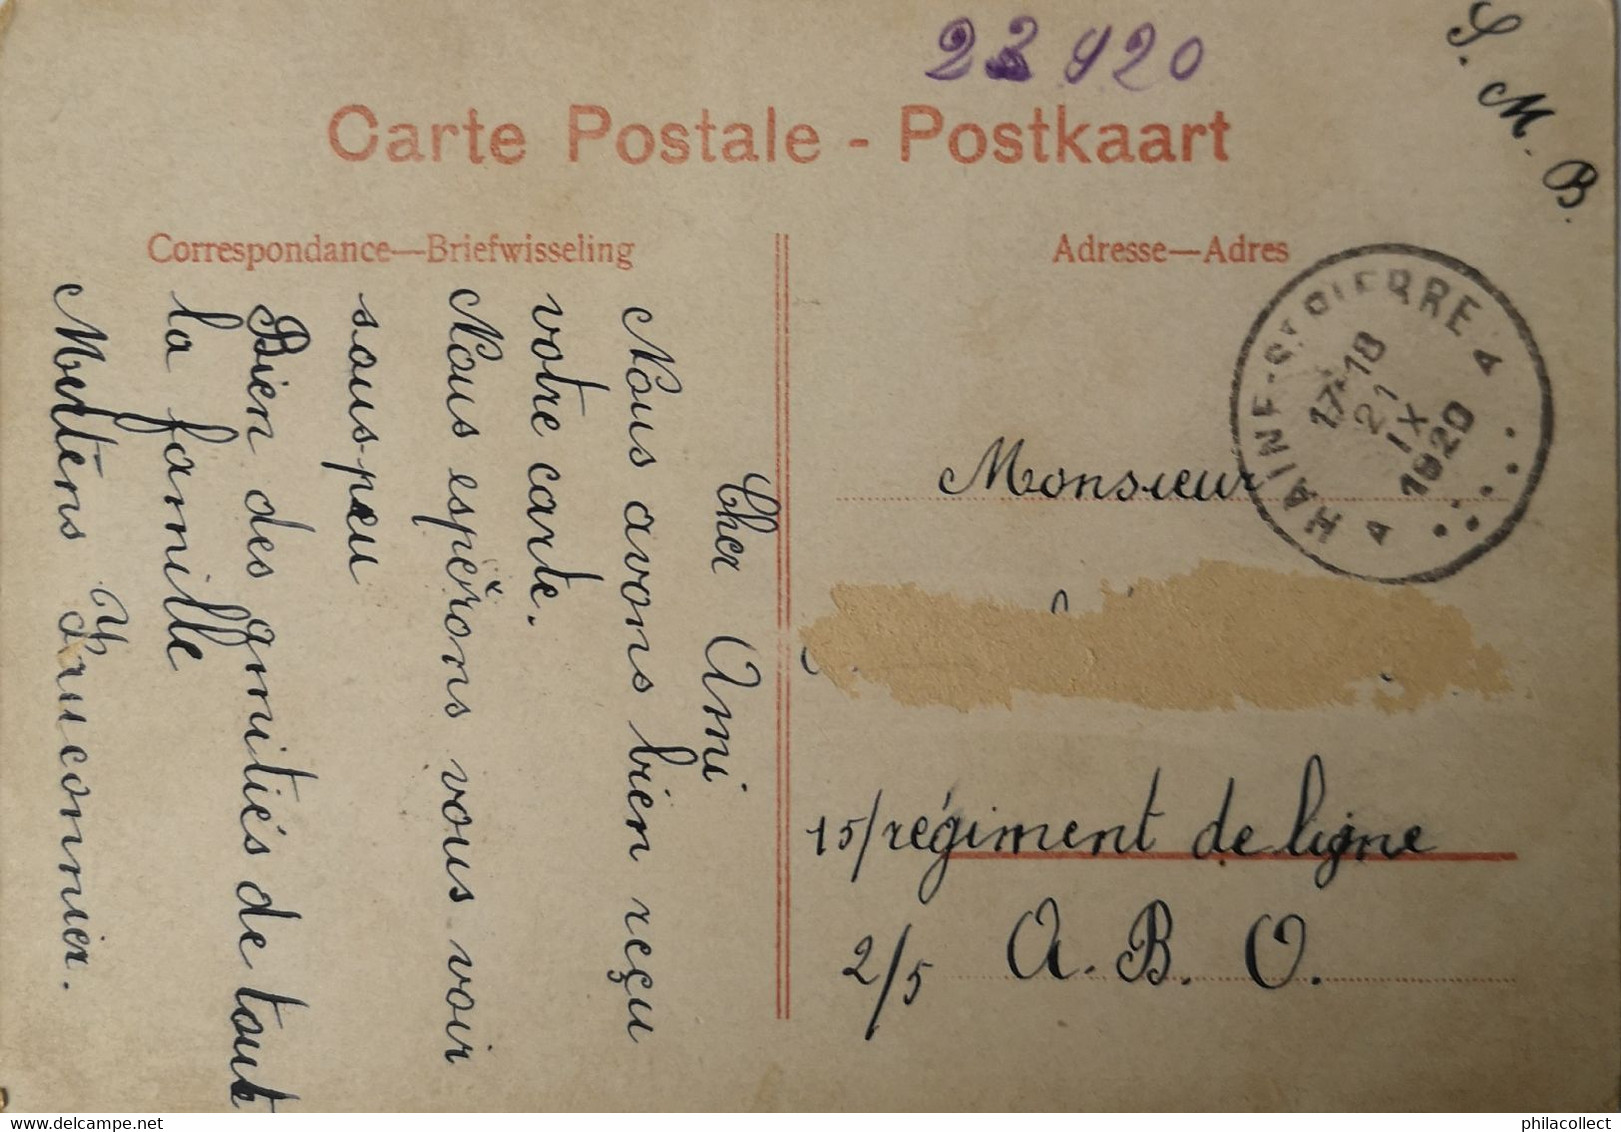 23 9 20
S. M. B.
Carte Postale - Postkaart
Correspondance—Briefwisseling
Adresse—Adres
HAINE-ST PIERRE
17-18
21
IX
1920
Cher Ami
Nous avons bien reçu
votre carte.
Nous espèrons vous voir
sous peu
Bien des amitiés de tout
la famille
Mertens
Monsieur
15/régiment de ligne
2/5 A. B. O.
philacollect